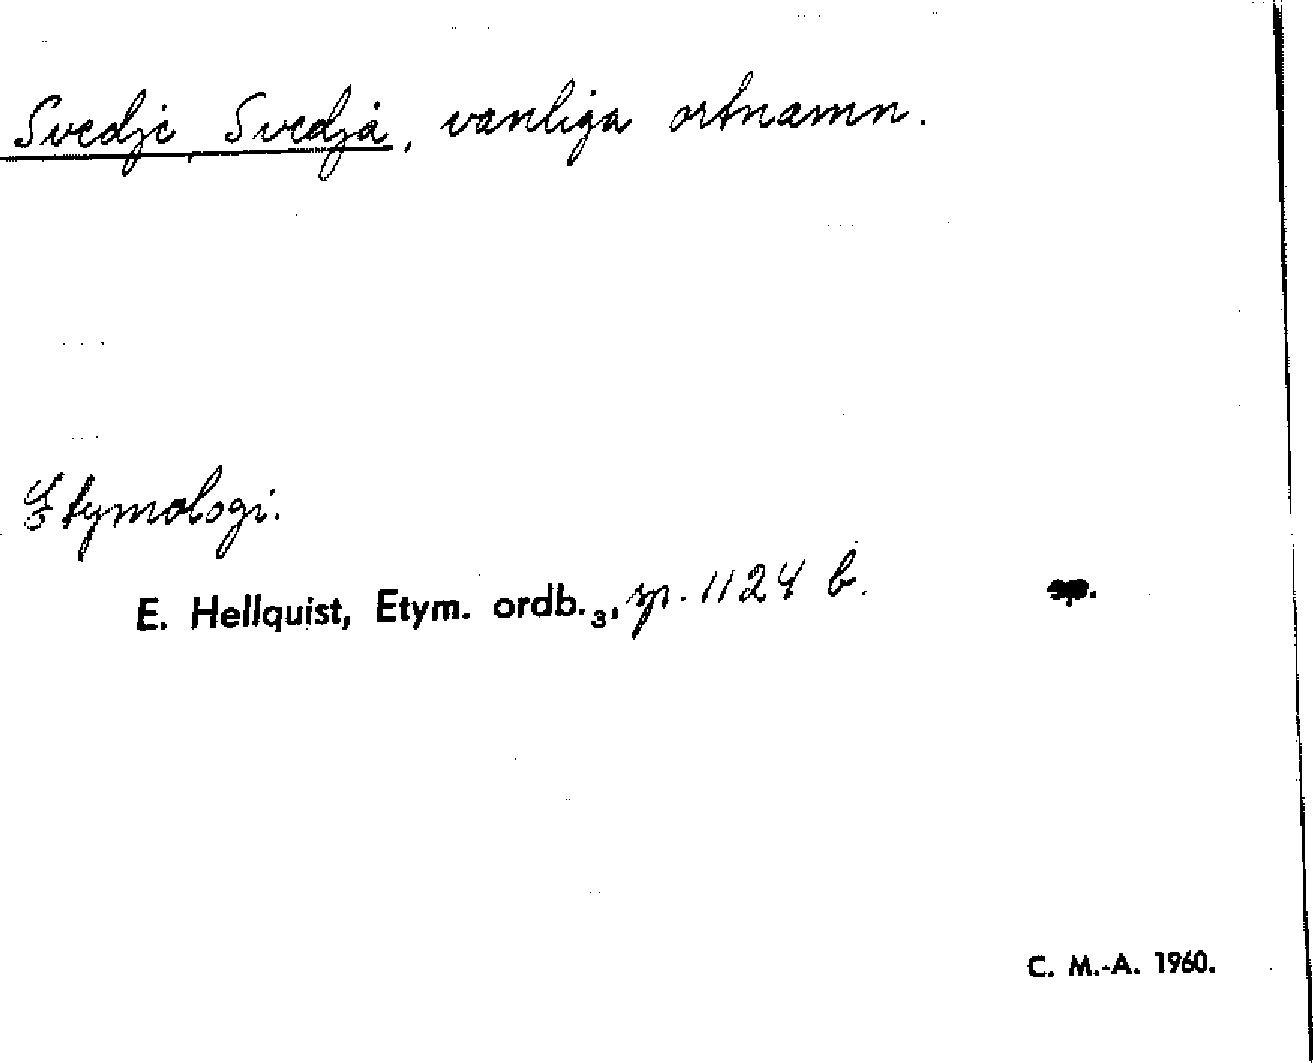 Svedje, Svedja, vanliga ortnamn.
Etymologi.
E. Hellquist, Etym. ordb.₃, sp. 1124 b.
C. M.-A. 1960.